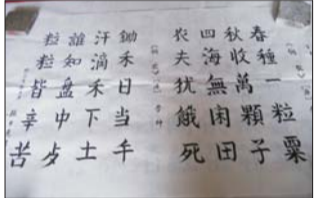 春種一粒粟
秋收萬顆子
四海無困田
农夫犹餓死
鋤禾日当午
汗滴禾下土
誰知盘中歺
粒粒皆辛苦